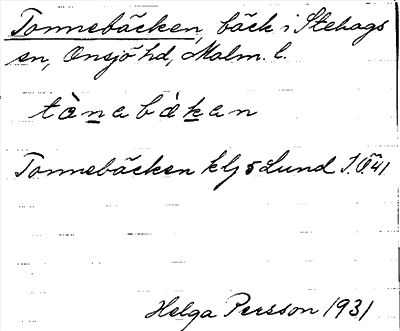 Tonnebäcken, bäck i Stehags
sn, Onsjö hd, Malm. l.
tànabàkan
Tonnebäcken klj 5 Lund S.Ö. 41
Helga Persson 1931